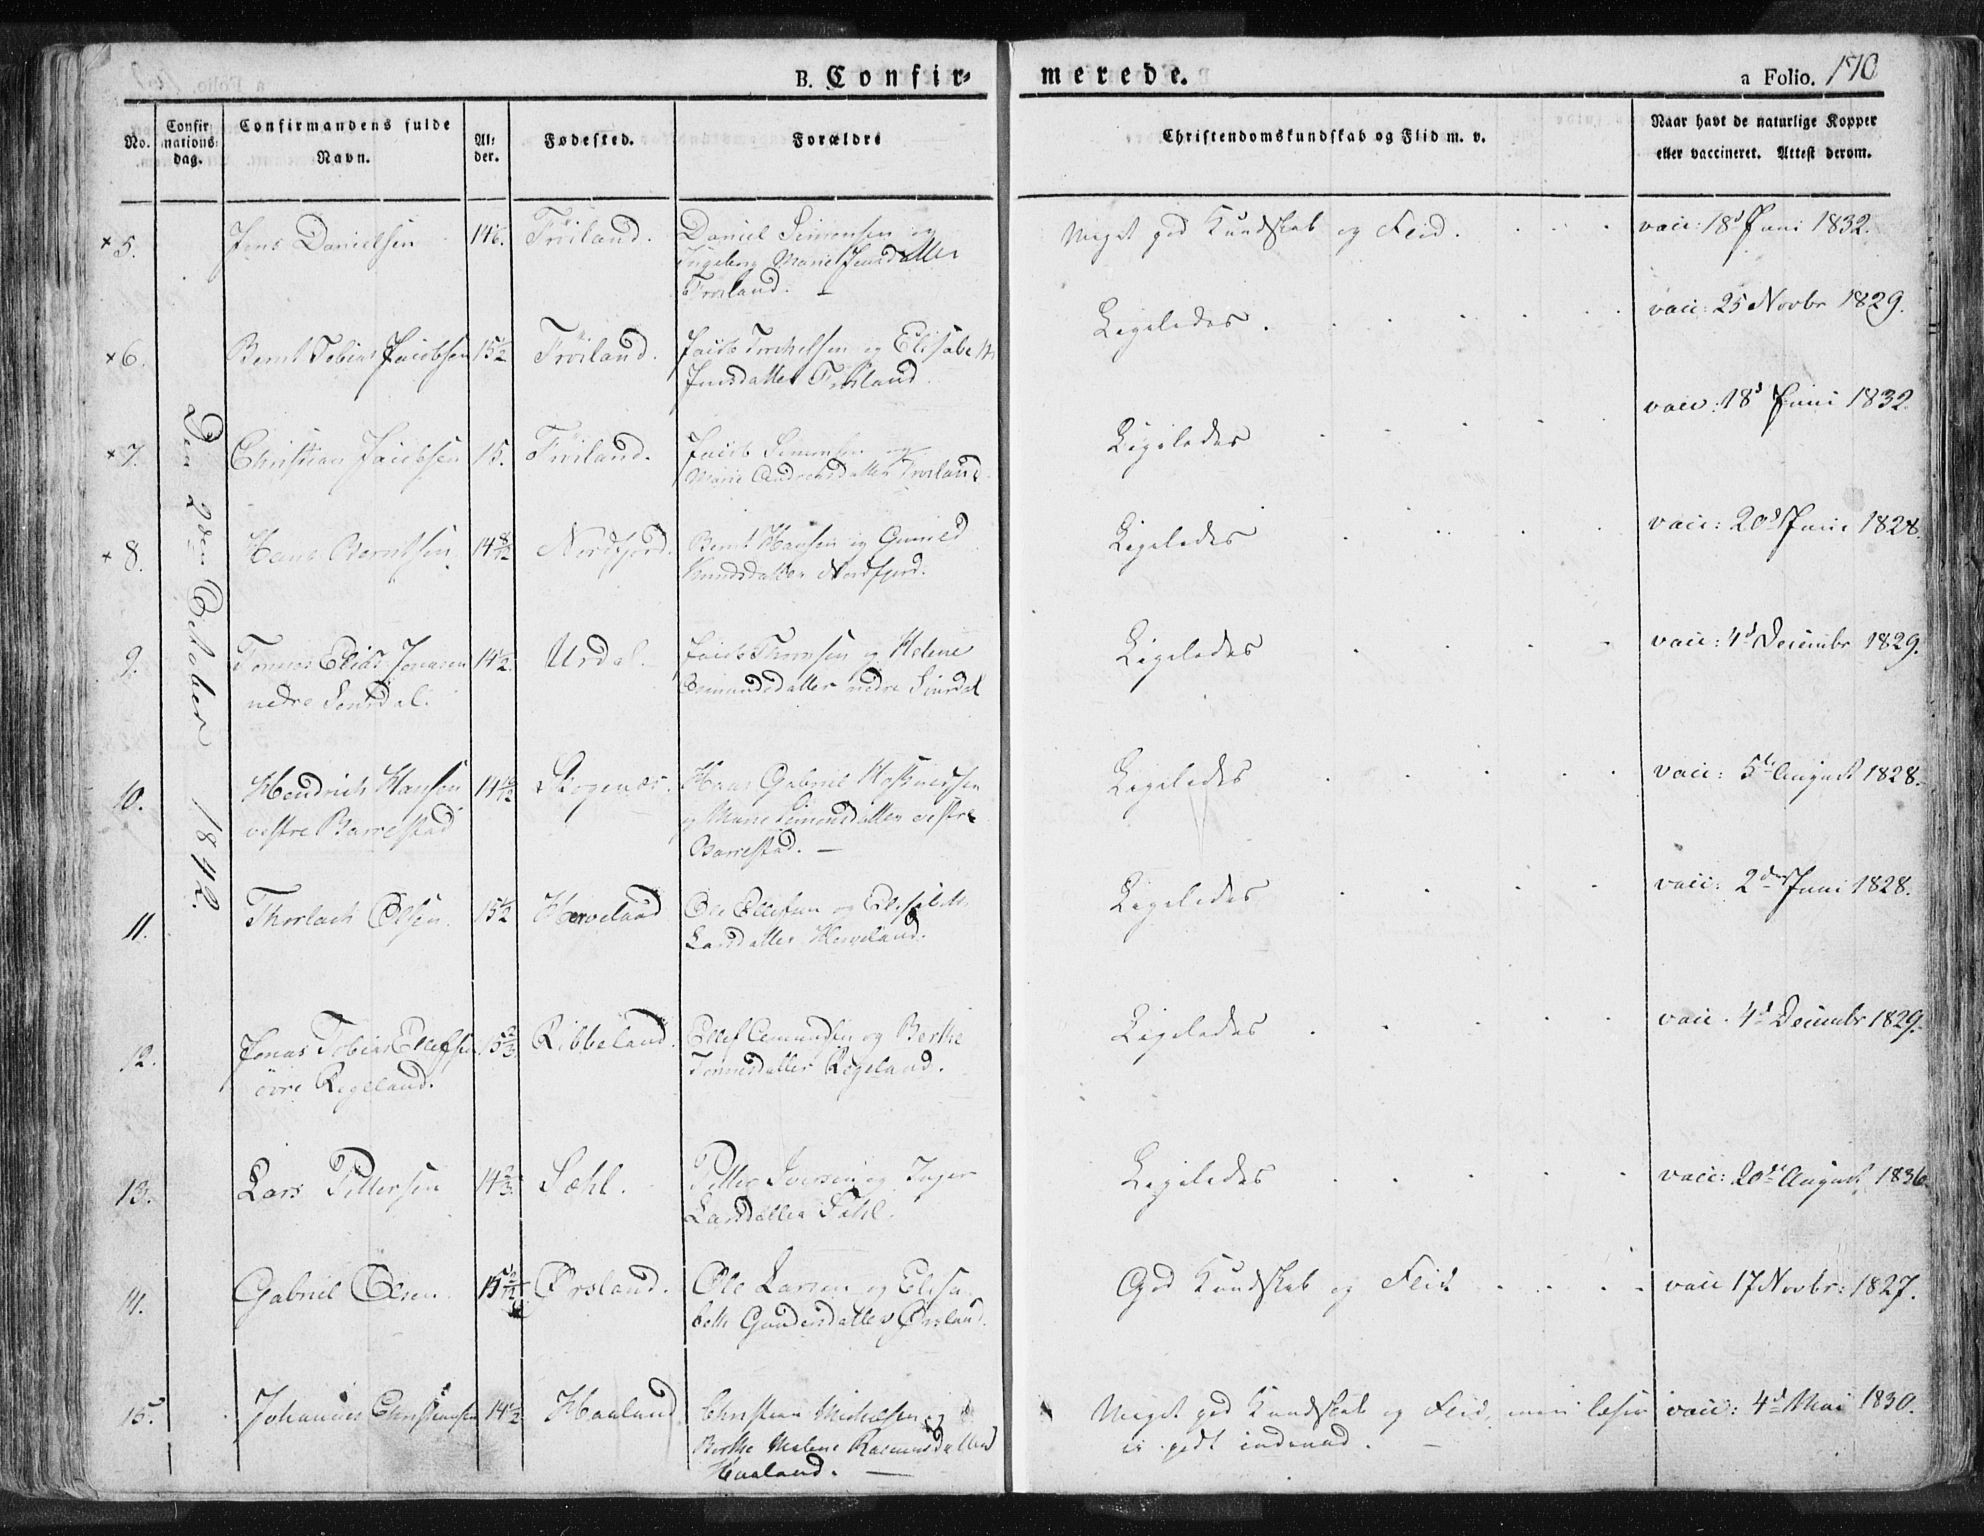 B. Confir-
merede.
a Folio. 170
No.
Confir
mations-
dag.
Confirmandens fulde
Navn.
Al-
der.
Fødested.
Forældre
Christendomskundskab og Flid m. v.
Naar havt de naturlige Kopper
eller vaccineret. Attest derom.
Den 2den October 1842.
× 5. Jens Danielsen 14 Fröiland. Daniel Simonsen og
Ingeborg Marie Jensdatter
Fröiland. —
Meget god Kundskab og Flid. vacc: 18d Juni 1832.
× 6. Bernt Tobias Jacobsen 15½ Fröiland. Jacob Torkelsen og Elisabeth
Jensdatter Fröiland.
Ligeledes. vacc: 25 Novbr 1829.
× 7. Christian Jacobsen 15. Fröiland. Jacob Simonsen og
Marie Andreasdatter Fröiland
Ligeledes vacc: 18d Juni 1832.
× 8. Hans Berntsen 14 8/12 Nordfjord. Bernt Hansen og Gunild
Knudsdatter Nordfjord.
Ligeledes vacc: 20d Juni 1828.
9. Tönnes Elias Jonasen
nedre
14½. Urdal. Jacob Thomsen og Helene
Osmundsdatter nedre
Ligeledes vacc: 4d Decembr 1829.
10. Hendrich Hansen
vestre Barrestad
14 Skogenæs. Hans Gabriel
og Marie Simonsdatter vestre
Barrestad. —
Ligeledes vacc: 5te August 1828.
11. Thorlach Olsen. 15½ Hærveland Ole Ellefsen og Elisabeth
Larsdatter Hærveland.
Ligeledes vacc: 2den Juni 1828.
12. Jonas Tobias Ellefsen
övre Regeland.
15⅔ Ribbeland. Ellef Osmundsen og Berthe
Tönnesdatter Regeland.
Ligeledes vacc. 4d Decembr 1829.
13. Lars Pettersen 14⅔ Sæhl. Petter Iversen og Inger
Larsdatter Sæhl.
Ligeledes vacc: 20de August 1836.
14. Gabriel Olsen. 15 Ørsland. Ole Larsen og Elisa-
beth Gundersdatter Ørsland.
God Kundskab og Flid vacc 17 Novbr: 1827.
15. Johannes Christiansen 14½ Haaland Christian Michelsen og
Berthe Malene Rasmusdatter
Haaland. —
Meget god Kundskab og Flid, men læser
ei godt indenad. —
vacc: 4d Mai 1830.